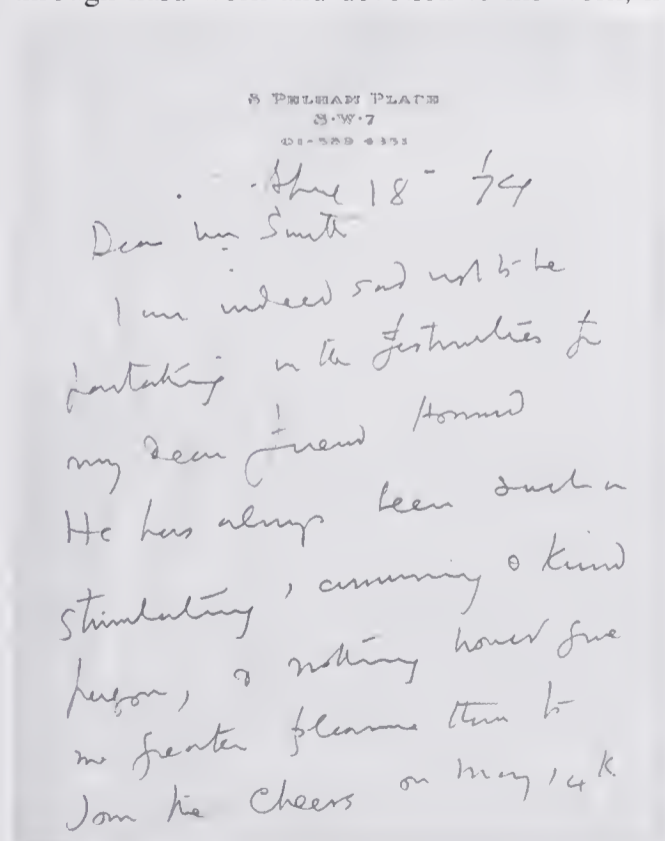 8 PELHAM PLACE
S·W·7
01-589 4351
April 18 - '74
Dear Mr Smith
I am indeed sad not to be
partaking in the festivities for
my dear friend
He has always been such a
stimulating, amusing & kind
person, & nothing would give
me greater pleasure than to
Join the cheers on May 14th